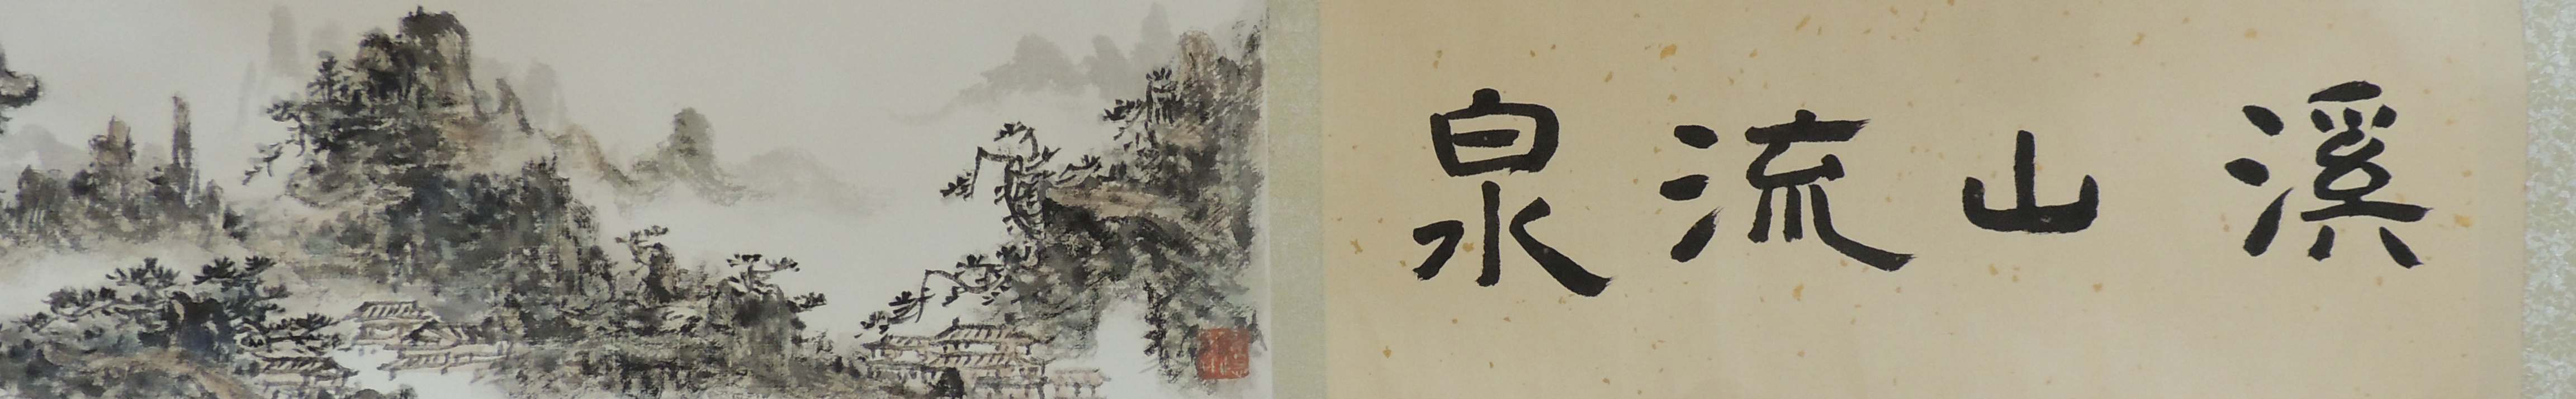 溪山流泉